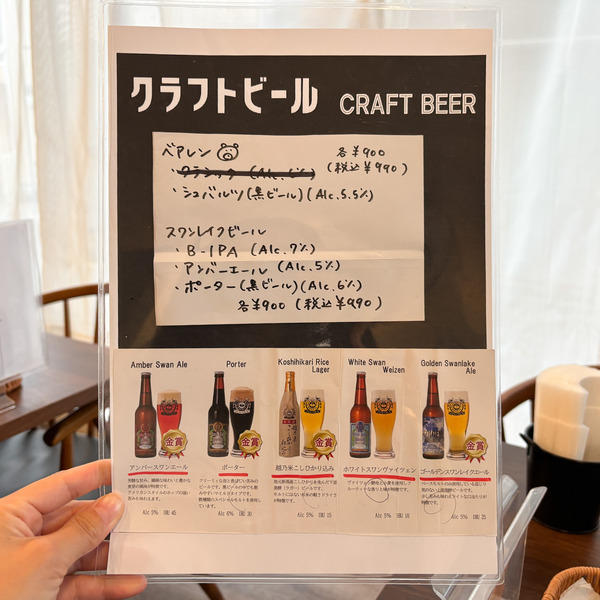 クラフトビール CRAFT BEER
ベアレン 各¥900
・クラシック (Alc. 6%) (税込¥990)
・シュバルツ(黒ビール)(Alc.5.5%)
スワンレイクビール
・B-IPA (Alc.7%)
・アンバーエール (Alc.5%)
・ポーター(黒ビール)(Alc.6%)
各¥900 (税込¥990)
Amber Swan Ale
金賞
アンバースワンエール
Alc 5% IBU 45
Porter
金賞
ポーター
Alc 6% IBU 30
Koshihikari Rice
Lager
金賞
越乃米こしひかり仕込み
Alc 5% IBU 15
White Swan
Weizen
ホワイトスワンヴァイツェン
Alc 5% IBU
Golden Swanlake
Ale
金賞
ゴールデンスワンレイクエール
Alc 5% IBU 25